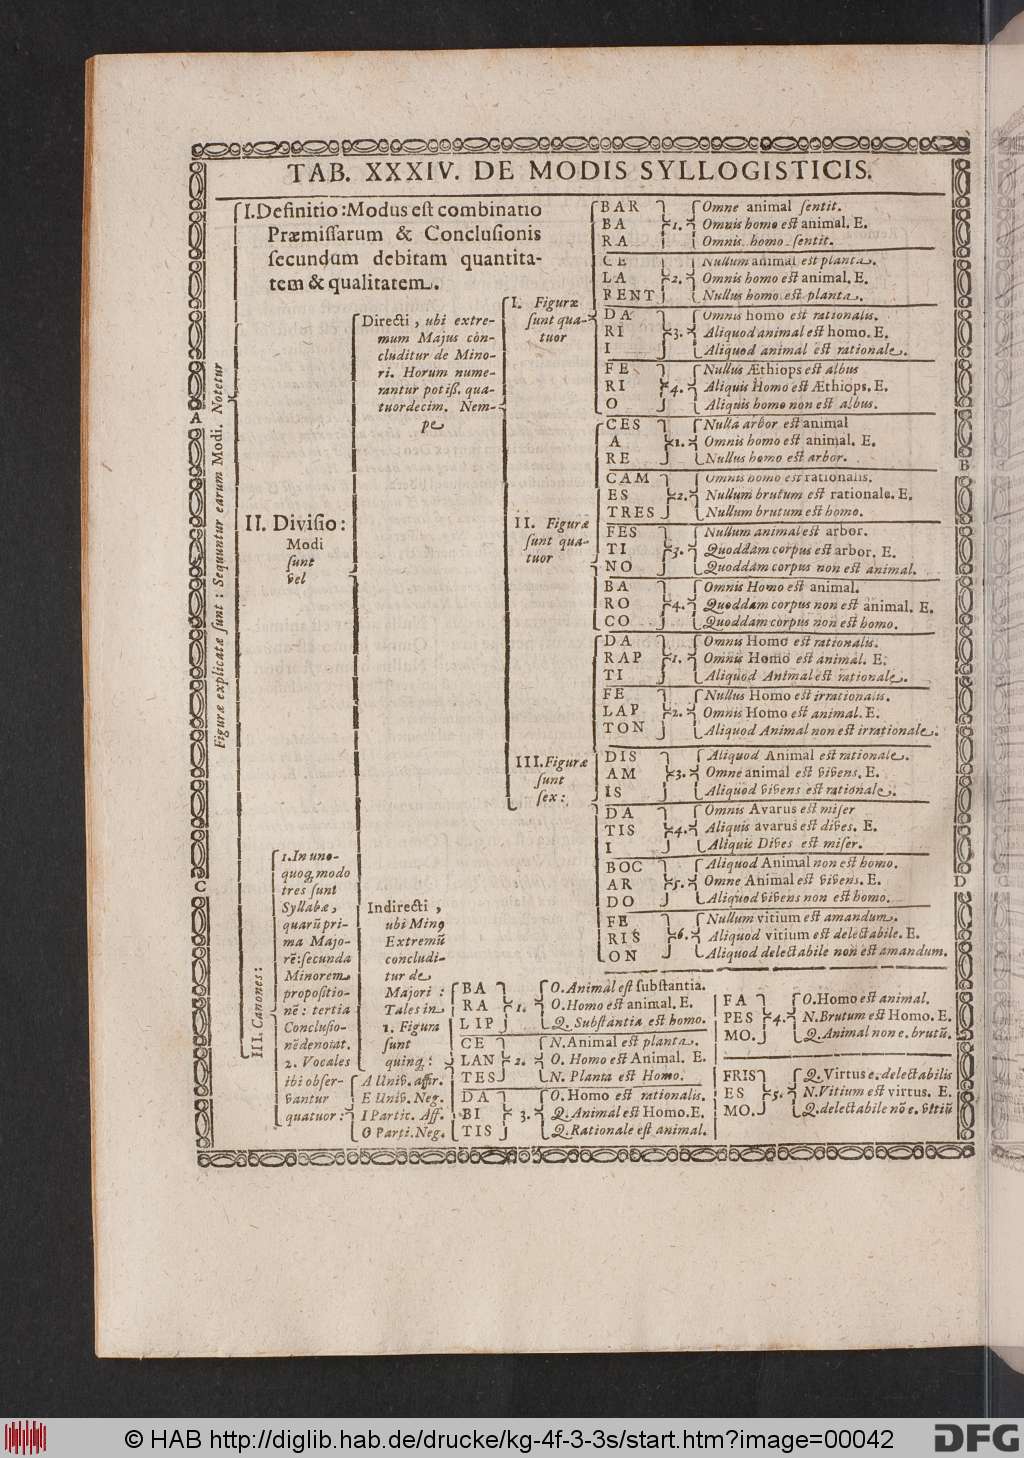 TAB. XXXIV. DE MODIS SYLLOGISTICIS.
Figuræ explicatæ sunt: Sequuntur earum Modi. Notetur
I. Definitio: Modus est combinatio
Præmissarum & Conclusionis
secundum debitam quantita-
tem & qualitatem.
II. Divisio:
Modi
sunt
vel
Directi, ubi extre-
mum Majus con-
cluditur de Mino-
ri. Horum nume-
rantur potiß. qua-
tuordecim. Nem-
pe
I. Figuræ
sunt qua-
tuor
BAR Omne animal sentit.
BA 1. Omnis homo est animal. E.
RA Omnis homo sentit.
CE Nullum animal est planta.
LA 2. Omnis homo est animal. E.
RENT Nullus homo est planta.
DA Omnis homo est rationalis.
RI 3. Aliquod animal est homo. E.
I Aliquod animal est rationale.
FE Nullus Æthiops est albus
RI 4. Aliquis Homo est Æthiops. E.
O Aliquis homo non est albus.
II. Figuræ
sunt qua-
tuor
CES Nulla arbor est animal
A 1. Omnis homo est animal. E.
RE Nullus homo est arbor.
CAM Omnis homo est rationalis.
ES 2. Nullum brutum est rationale. E.
TRES Nullum brutum est homo.
FES Nullum animal est arbor.
TI 3. Quoddam corpus est arbor. E.
NO Quoddam corpus non est animal.
BA Omnis Homo est animal.
RO 4. Quoddam corpus non est animal. E.
CO Quoddam corpus non est homo.
III. Figuræ
sunt
sex:
DA Omnis Homo est rationalis.
RAP 1. Omnis Homo est animal. E.
TI Aliquod Animal est rationale.
FE Nullus Homo est irrationalis.
LAP 2. Omnis Homo est animal. E.
TON Aliquod Animal non est irrationale.
DIS Aliquod Animal est rationale.
AM 3. Omne animal est vivens. E.
IS Aliquod vivens est rationale.
DA Omnis Avarus est miser
TIS 4. Aliquis avarus est dives. E.
I Aliquis Dives est miser.
BOC Aliquod Animal non est homo.
AR 5. Omne Animal est vivens. E.
DO Aliquod vivens non est homo.
FE Nullum vitium est amandum.
RIS 6. Aliquod vitium est delectabile. E.
ON Aliquod delectabile non est amandum.
Indirecti,
ubi Minꝰ
Extremũ
concludi-
tur de
Majori:
Tales in
1. Figura
sunt
quinq;:
BA O. Animal est substantia.
RA 1. O. Homo est animal. E.
LIP Q. Substantia est homo.
CE N. Animal est planta.
LAN 2. O. Homo est Animal. E.
TES N. Planta est Homo.
DA O. Homo est rationalis.
BI 3. Q. Animal est Homo. E.
TIS Q. Rationale est animal.
FA O. Homo est animal.
PES 4. N. Brutum est Homo. E.
MO. Q. Animal non e. brutũ.
FRIS Q. Virtus e. delectabilis
ES 5. N. Vitium est virtus. E.
MO. Q. delectabile nõ e. vitiũ
III. Canones:
1. In uno-
quoq; modo
tres sunt
Syllabæ,
quarũ pri-
ma Majo-
rẽ: secunda
Minorem
propositio-
nẽ: tertia
Conclusio-
nẽ denotat.
2. Vocales
ibi obser-
vantur
quatuor:
A Univ. affir.
E Univ. Neg.
I Partic. Aff.
O Parti. Neg.
A
B
C
D
© HAB http://diglib.hab.de/drucke/kg-4f-3-3s/start.htm?image=00042
DFG